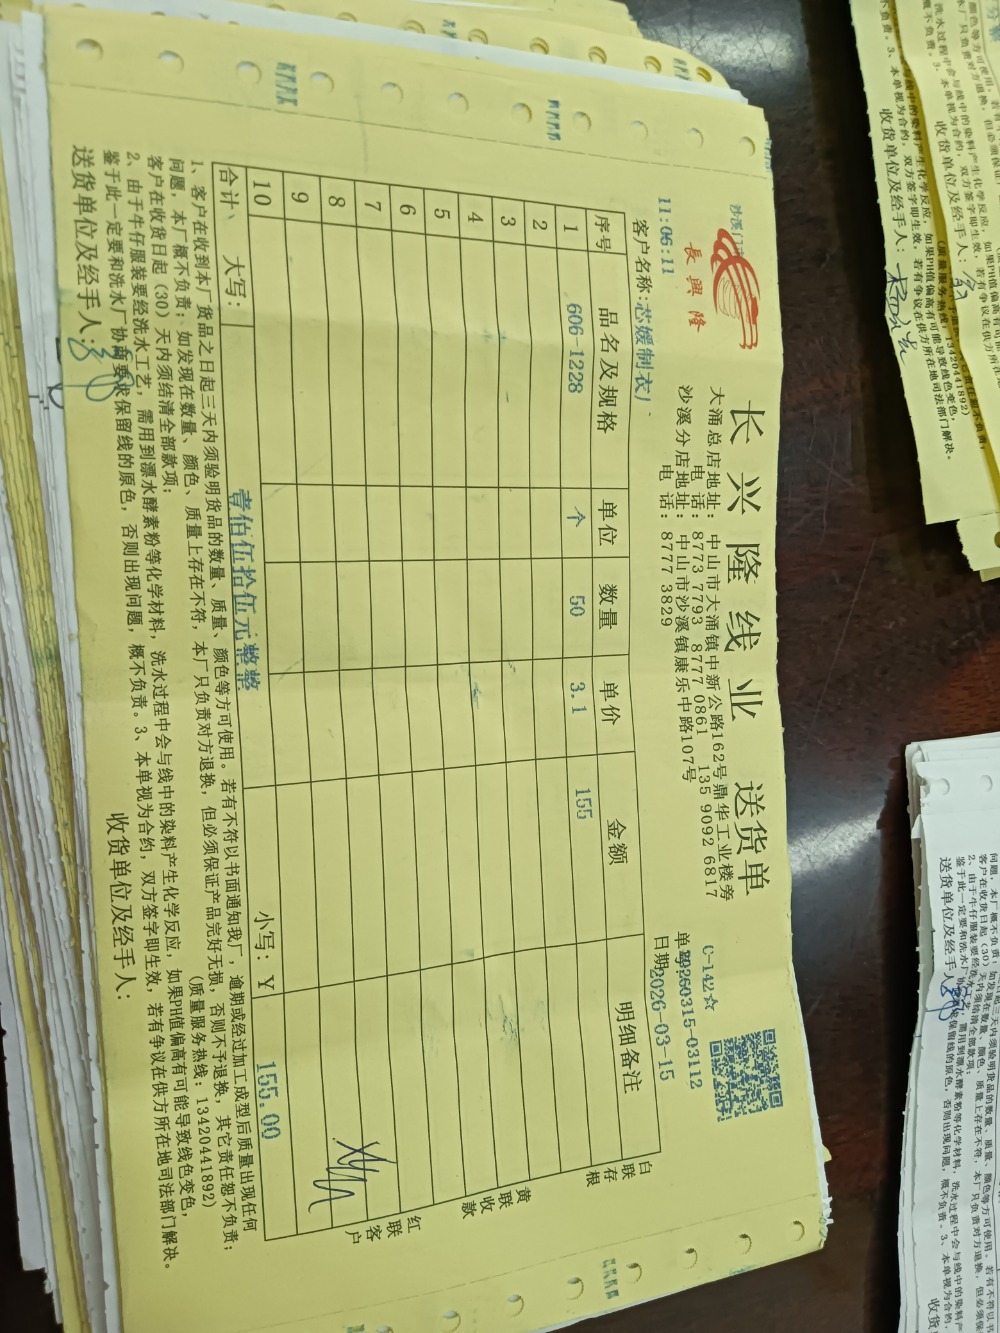 沙溪门
長興隆
长兴隆线业 送货单
大涌总店地址：中山市大涌镇中新公路162号鼎华工业楼旁
电话：8773 7793 8777 0861 135 9092 6817
沙溪分店地址：中山市沙溪镇康乐中路107号
电话：8777 3829
C-142☆
单号:20260315-03112
日期:2026-03-15
11:06:11
客户名称:芯媛制衣厂
序号 品名及规格 单位 数量 单价 金额 明细备注
1 606-1228 个 50 3.1 155
2
3
4
5
6
7
8
9
10
合计、大写：壹佰伍拾伍元整整 小写：Y 155.00
白联存根
黄联收款
红联客户
1、客户在收到本厂货品之日起三天内须验明货品的数量、质量、颜色等方可使用。若有不符以书面通知我厂，逾期或经过加工成型后质量出现任何
问题，本厂概不负责；如发现在数量、颜色、质量上存在不符，本厂只负责对方退换，但必须保证产品完好无损，否则不予退换，其它责任恕不负责；
客户在收货日起（30）天内须结清全部款项； （质量服务热线：13420441892）
2、由于牛仔服装要经洗水工艺，需用到漂水酵素粉等化学材料，洗水过程中会与线中的染料产生化学反应，如果PH值偏高有可能导致线色变色，
鉴于此一定要和洗水厂协商要求保留线的原色，否则出现问题，概不负责。3、本单视为合约，双方签字即生效，若有争议在供方所在地司法部门解决。
送货单位及经手人： 收货单位及经手人：